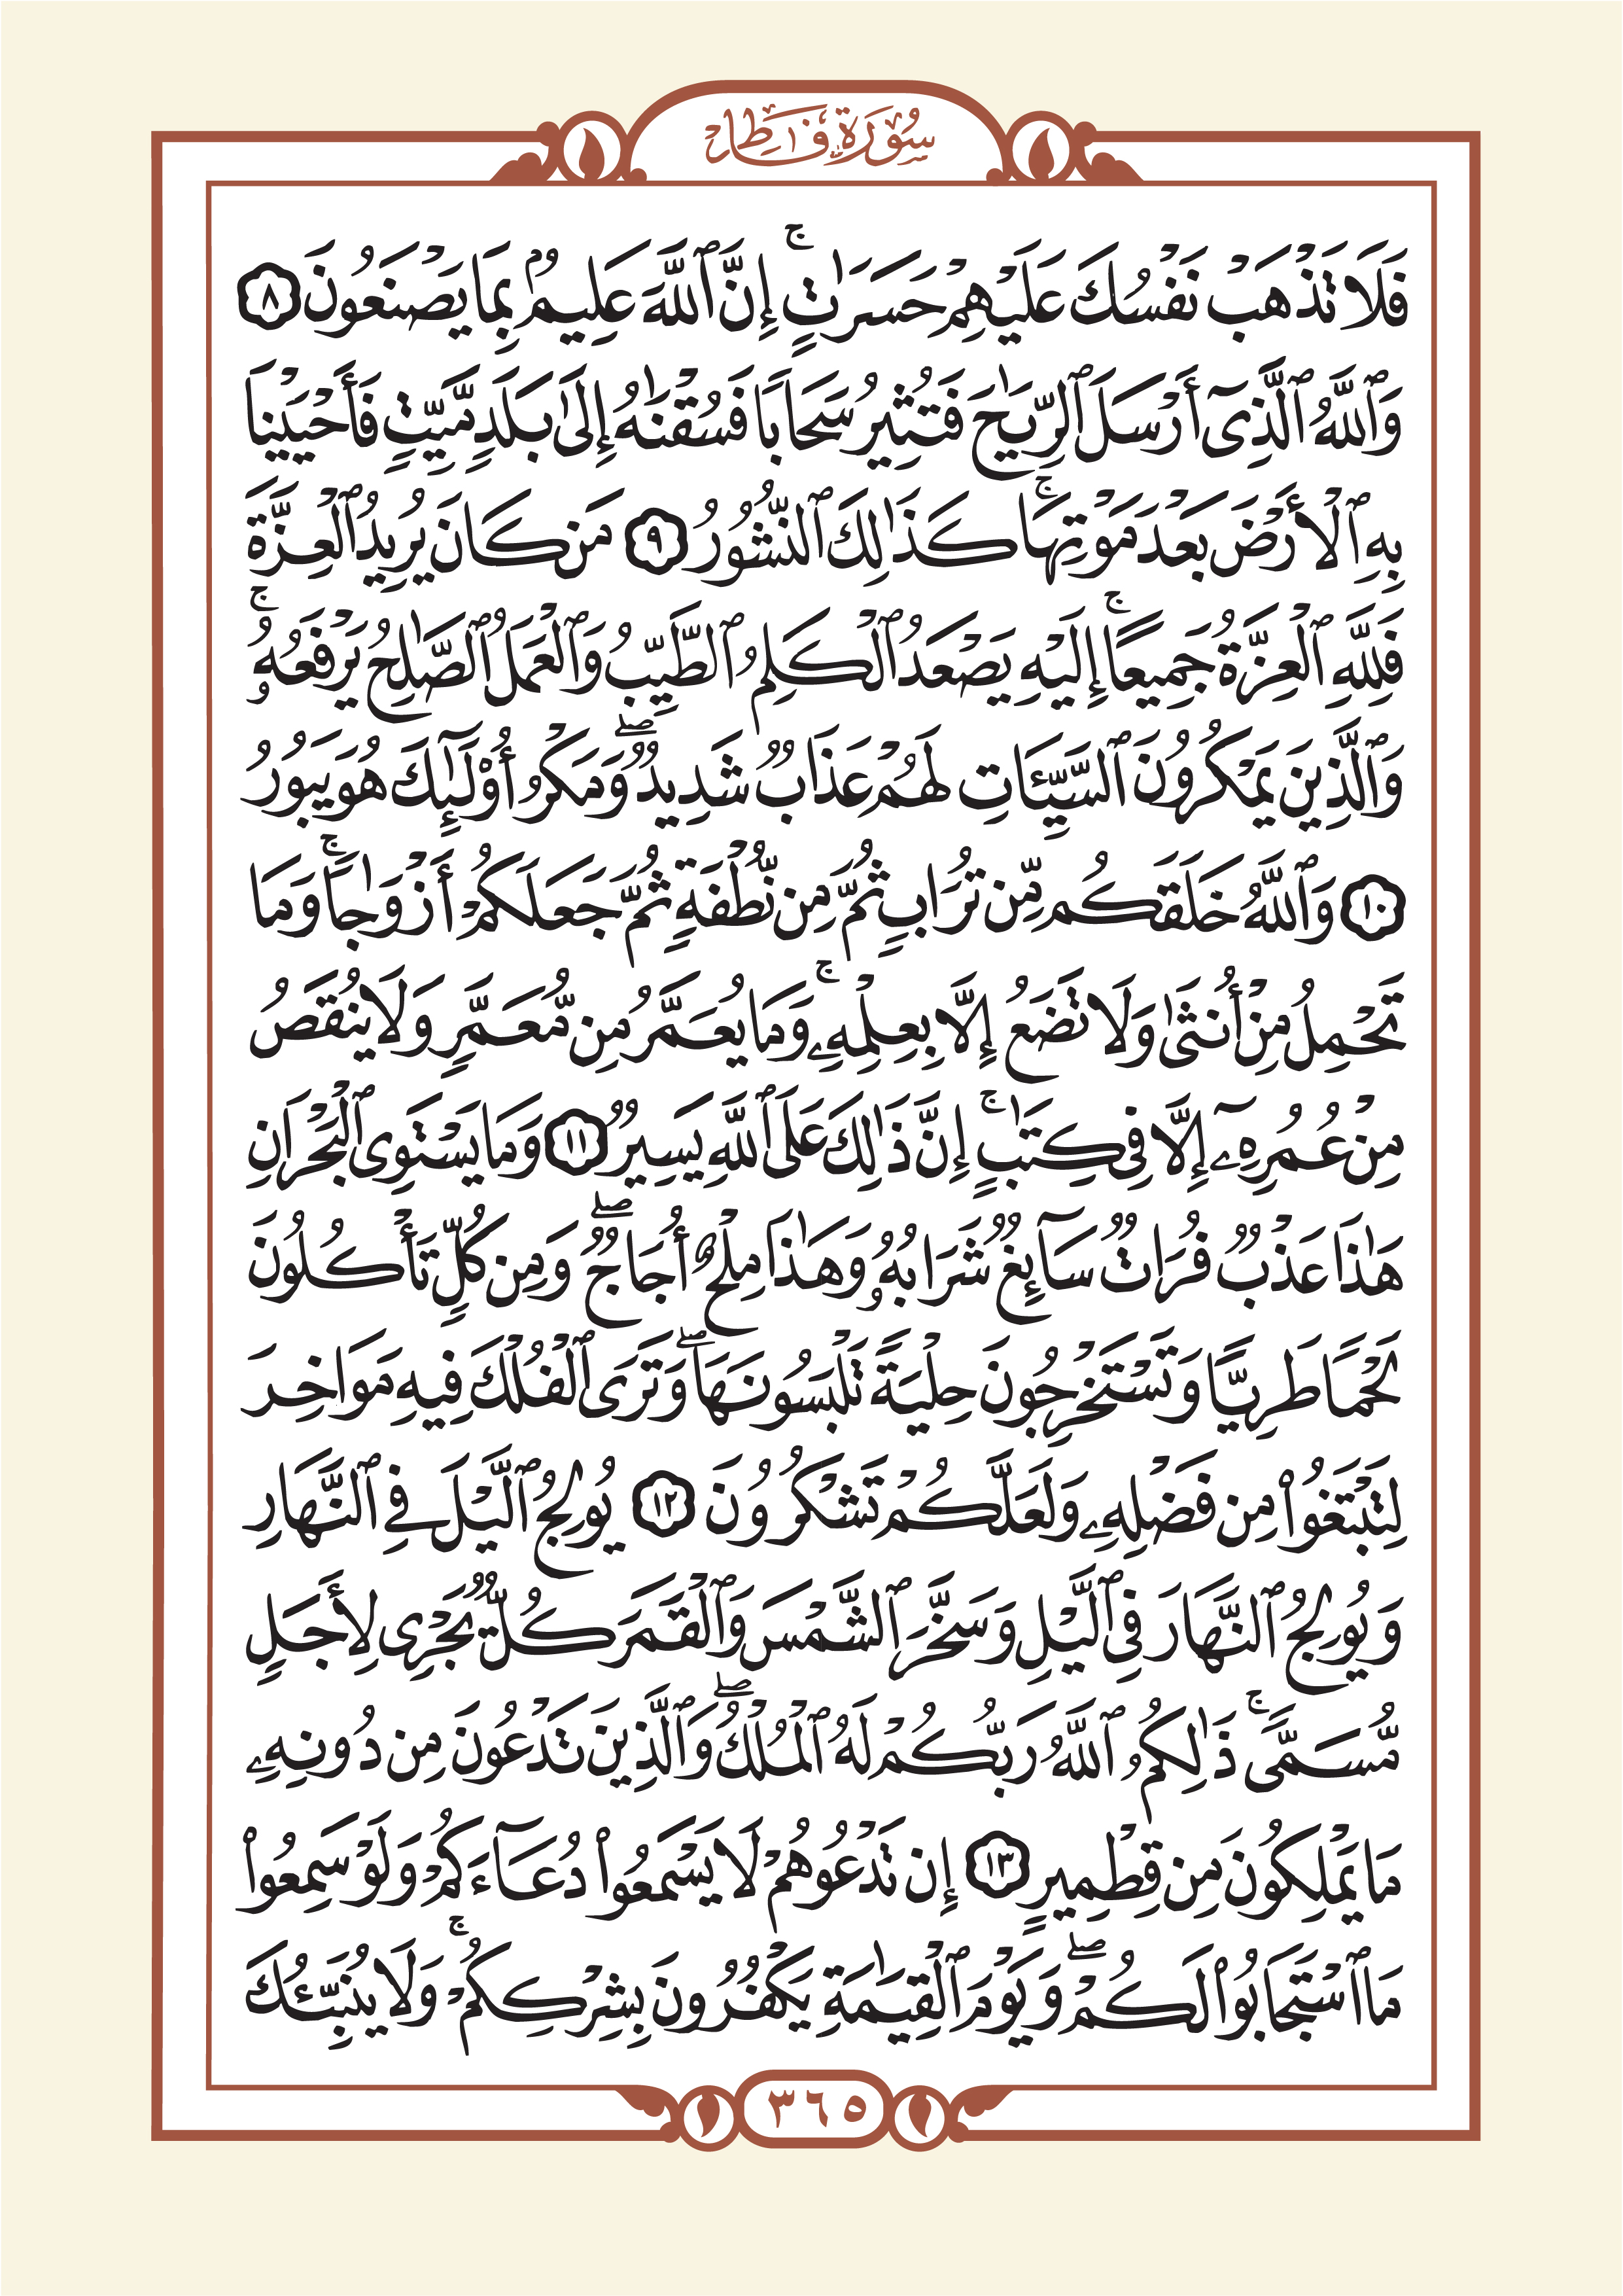 سُورَةُ فَاطِر
فَلَا تَذْهَبْ نَفْسُكَ عَلَيْهِمْ حَسَرَٰتٍۚ إِنَّ ٱللَّهَ عَلِيمُۢ بِمَا يَصْنَعُونَ ٨
وَٱللَّهُ ٱلَّذِىٓ أَرْسَلَ ٱلرِّيَٰحَ فَتُثِيرُ سَحَابًا فَسُقْنَٰهُ إِلَىٰ بَلَدٍ مَّيِّتٍ فَأَحْيَيْنَا
بِهِ ٱلْأَرْضَ بَعْدَ مَوْتِهَاۚ كَذَٰلِكَ ٱلنُّشُورُ ٩ مَن كَانَ يُرِيدُ ٱلْعِزَّةَ
فَلِلَّهِ ٱلْعِزَّةُ جَمِيعًاۚ إِلَيْهِ يَصْعَدُ ٱلْكَلِمُ ٱلطَّيِّبُ وَٱلْعَمَلُ ٱلصَّٰلِحُ يَرْفَعُهُۥۚ
وَٱلَّذِينَ يَمْكُرُونَ ٱلسَّيِّـَٔاتِ لَهُمْ عَذَابٌ شَدِيدٌۖ وَمَكْرُ أُوْلَٰٓئِكَ هُوَ يَبُورُ
١٠ وَٱللَّهُ خَلَقَكُم مِّن تُرَابٍ ثُمَّ مِن نُّطْفَةٍ ثُمَّ جَعَلَكُمْ أَزْوَٰجًاۚ وَمَا
تَحْمِلُ مِنْ أُنثَىٰ وَلَا تَضَعُ إِلَّا بِعِلْمِهِۦۚ وَمَا يُعَمَّرُ مِن مُّعَمَّرٍ وَلَا يُنقَصُ
مِنْ عُمُرِهِۦٓ إِلَّا فِى كِتَٰبٍۚ إِنَّ ذَٰلِكَ عَلَى ٱللَّهِ يَسِيرٌ ١١ وَمَا يَسْتَوِى ٱلْبَحْرَانِ
هَٰذَا عَذْبٌ فُرَاتٌ سَآئِغٌ شَرَابُهُۥ وَهَٰذَا مِلْحٌ أُجَاجٌۖ وَمِن كُلٍّ تَأْكُلُونَ
لَحْمًا طَرِيًّا وَتَسْتَخْرِجُونَ حِلْيَةً تَلْبَسُونَهَاۖ وَتَرَى ٱلْفُلْكَ فِيهِ مَوَاخِرَ
لِتَبْتَغُوا۟ مِن فَضْلِهِۦ وَلَعَلَّكُمْ تَشْكُرُونَ ١٢ يُولِجُ ٱلَّيْلَ فِى ٱلنَّهَارِ
وَيُولِجُ ٱلنَّهَارَ فِى ٱلَّيْلِ وَسَخَّرَ ٱلشَّمْسَ وَٱلْقَمَرَ كُلٌّ يَجْرِى لِأَجَلٍ
مُّسَمًّىۚ ذَٰلِكُمُ ٱللَّهُ رَبُّكُمْ لَهُ ٱلْمُلْكُۖ وَٱلَّذِينَ تَدْعُونَ مِن دُونِهِۦ
مَا يَمْلِكُونَ مِن قِطْمِيرٍ ١٣ إِن تَدْعُوهُمْ لَا يَسْمَعُوا۟ دُعَآءَكُمْ وَلَوْ سَمِعُوا۟
مَا ٱسْتَجَابُوا۟ لَكُمْۖ وَيَوْمَ ٱلْقِيَٰمَةِ يَكْفُرُونَ بِشِرْكِكُمْۚ وَلَا يُنَبِّئُكَ
٣٦٥